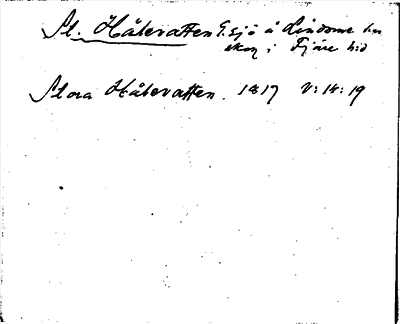 St. Hålevatten G. sjö å Lindome hrs
skog i Fjäre hd
Stora Hålevatten. 1817 V: 14: 19